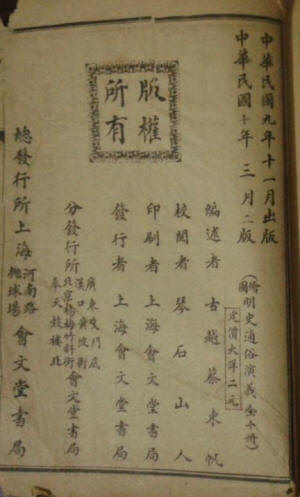 中華民國九年十一月出版
中華民國十年三月二版
版權所有
(繪圖明史通俗演義全十冊)
定價大洋二元
編述者 古越蔡東帆
校閱者 琴石山人
印刷者 上海會文堂書局
發行者 上海會文堂書局
分發行所
廣東雙門底
漢口黃陂街
北京楊梅竹斜街
奉天鼓樓北
會文堂書局
總發行所上海河南路拋球場會文堂書局